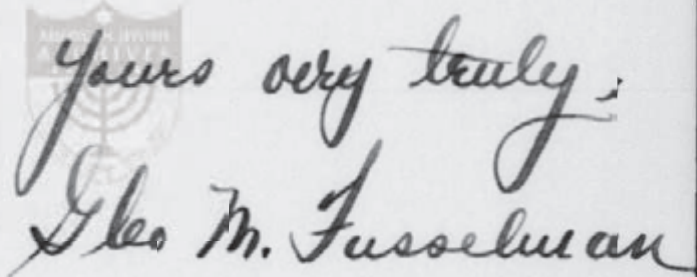 Yours very truly,
Geo M. Fusselman